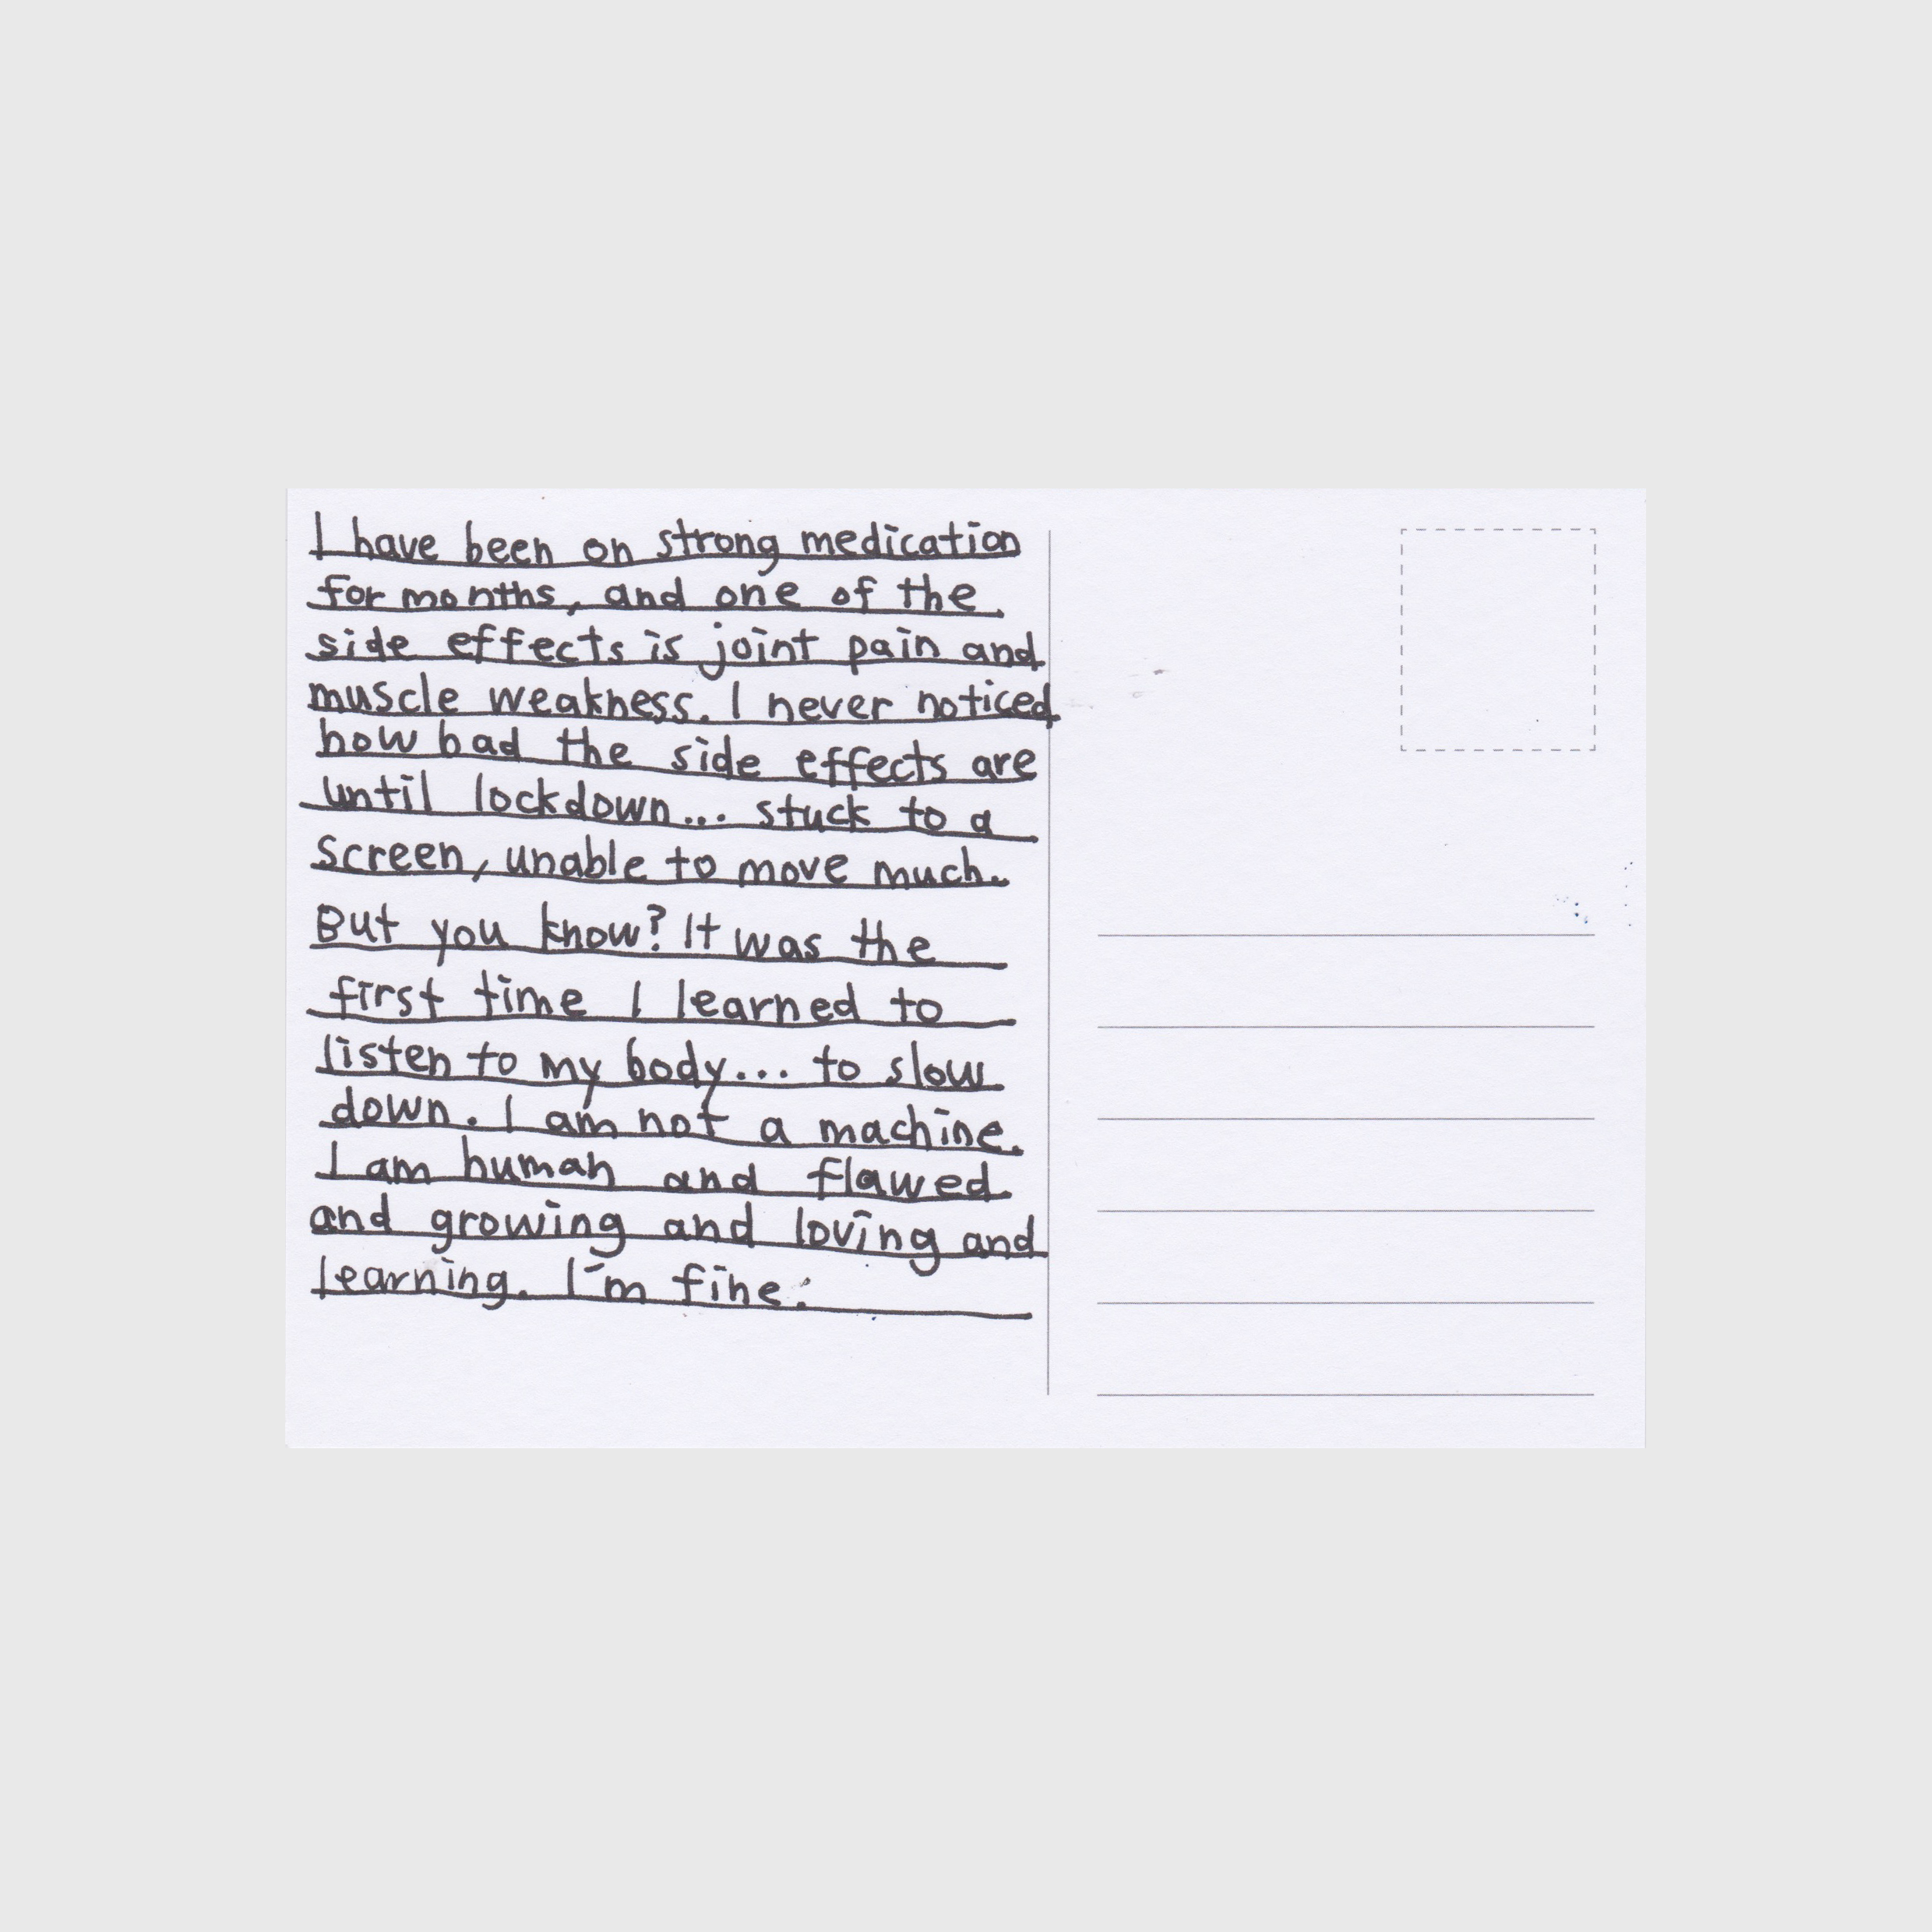 I have been on strong medication
for months, and one of the
side effects is joint pain and
muscle weakness. I never noticed
how bad the side effects are
until lockdown... stuck to a
screen, unable to move much.
But you know? It was the
first time I learned to
listen to my body... to slow
down. I am not a machine.
I am human and flawed
and growing and loving and
learning. I'm fine.